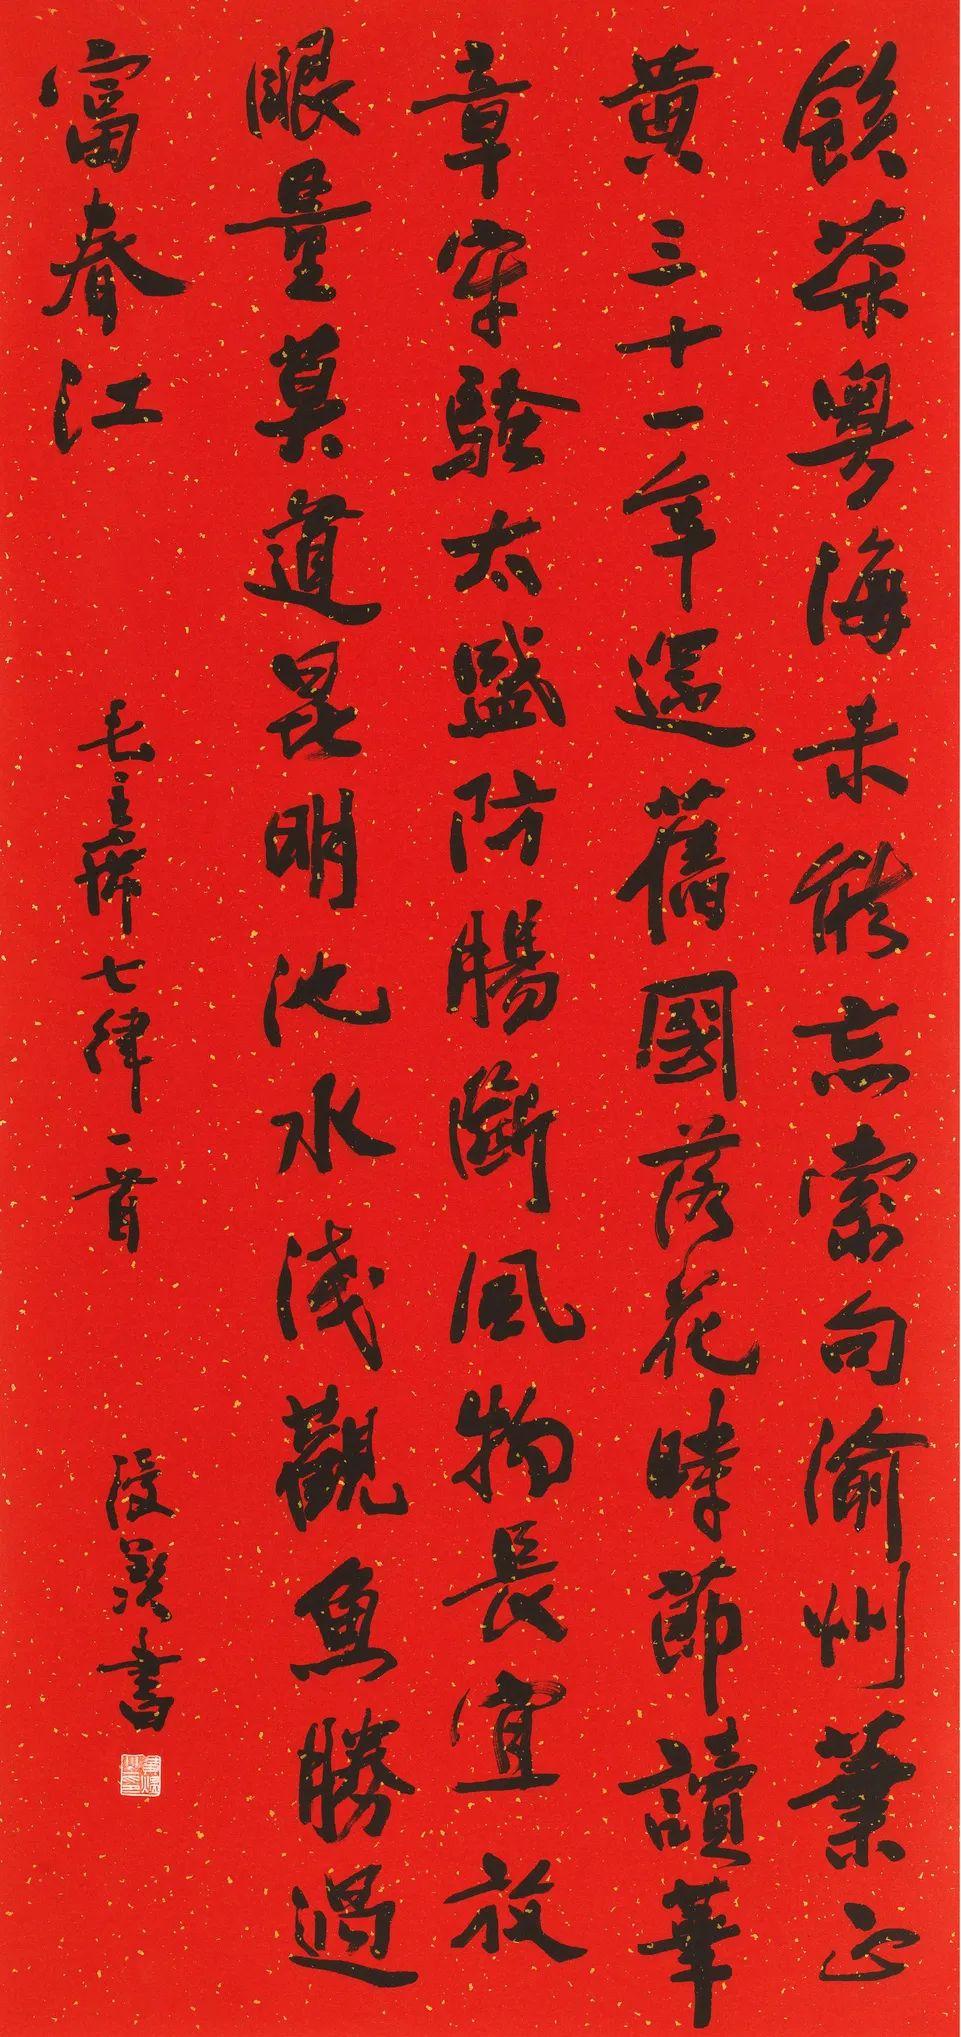 飲茶粵海未能忘索句渝州葉正
黃三十一年還舊國落花時節讀華
章牢騷太盛防腸斷風物長宜放
眼量莫道昆明池水淺觀魚勝過
富春江
毛主席七律一首
書